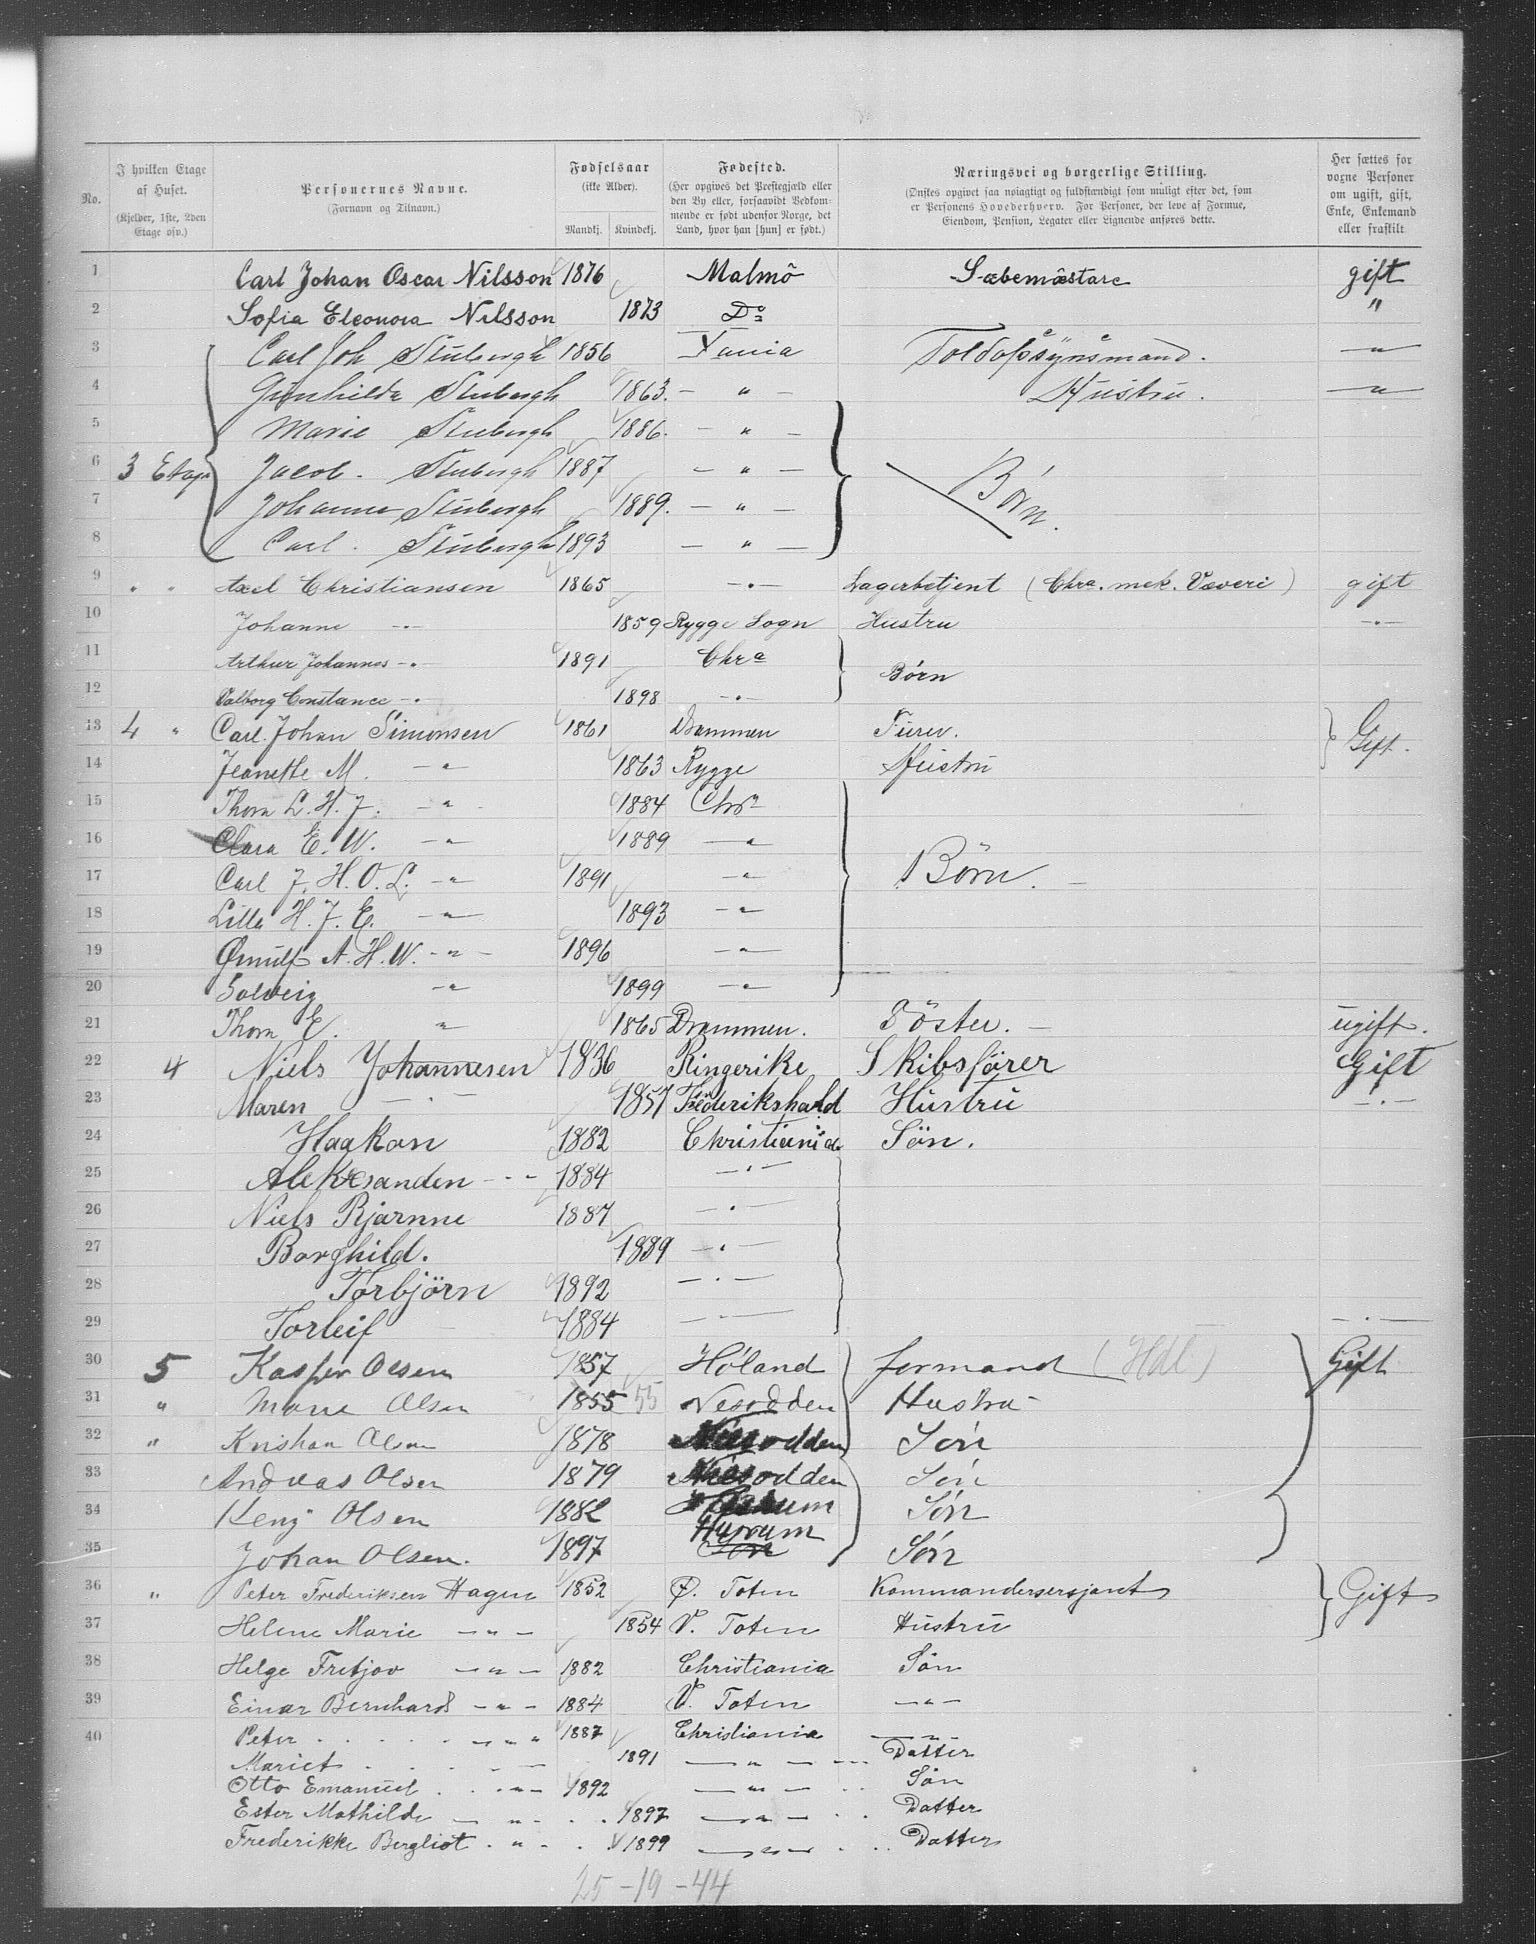 No. | I hvilken Etage af Huset. (Kjelder, 1ste, 2den Etage osv.) | Personernes Navne. (Fornavn og Tilnavn.) | Fødselsaar (ikke Alder). Mandkj. Kvindekj. | Fødested. (Her opgives det Prestegjæld eller den By eller, forsaavidt Vedkommende er født udenfor Norge, det Land, hvor han [hun] er født.) | Næringsvei og borgerlige Stilling. (Ønskes opgivet saa nøiagtigt og fuldstændigt som muligt efter det, som er Personens Hovederhverv. For Personer, der leve af Formue, Eiendom, Pension, Legater eller Lignende anføres dette.) | Her sættes for voxne Personer om ugift, gift, Enke, Enkemand eller fraskilt
1 Carl Johan Oscar Nilsson 1876 Malmö Sæbemästare gift
2 Sofia Eleonora Nilsson 1873 Do "
3 Carl Joh Stubergh 1856 Toldopsynsmand. — " —
4 Gunhilda Stubergh 1863. — " — Hustru. — " —
5 Marie Stubergh 1886. — " —
6 3 Etage Jacob. Stubergh 1887 — " — Børn.
7 Johanna Stubergh 1889. — " —
8 Carl. Stubergh 1893 — " —
9 " " Axel Christiansen 1865 — " — Lagerbetjent (Chra. mek. Væveri) gift
10 Johanne — " — 1859 Rygge Sogn Hustru — " —
11 Arthur Johannes — " 1891 Chra Børn
12 Valborg Constance — " 1898 — " —
13 4 " Carl Johan Simonsen 1861 Drammen Gift.
14 Jeanette M. — " — 1863 Rygge Hustru
15 Thora L. H. J. — " — 1884 Chra
16 Clara E. W. — " — 1889 — " —
17 Carl J. H. O. L. — " — 1891 — " — Børn. —
18 Lilla H. J. E. — " — 1893 — " —
19 Ørnulf A. H. W. — " — 1896 — " —
20 Solveig — " — 1899 — " —
21 Thora E. " 1865 Drammen. Söster. — ugift.
22 4 Niels Johannesen 1836 Ringerike Skibsförer Gift
23 Maren — " — 1857 Frederikshald Hustru — " —
24 Haakon 1882 Christiania Sön.
25 Aleksander — " — 1884 — " —
26 Niels Bjarnne 1887 — " —
27 Borghild. 1889 — " —
28 Torbjörn 1892 — " —
29 Torleif 1884 — " — — " —
30 5 Kasper Olsen 1857 Høland formand (Hdl) Gift
31 " Marie Olsen 1855 55 Nesodden Hustru —
32 " Kristian Olsen 1878 Nesodden Søn
33 Andreas Olsen 1879 Nesodden Søn
34 Olsen 1882 Hurum Søn
35 Johan Olsen. 1897 Hurum Søn
36 " Peter Frederiksen Hagen 1852 Ø. Toten Kommandersersjant Gift
37 Helene Marie — " — 1854 V. Toten Hustru
38 Helge Fritjov — " — 1882 Christiania Søn
39 Einar Bernhard — " — 1884 V. Toten — " —
40 Peter . . . . . — " " 1887 Christiania — " —
Mariet . . . . — 1891 — " — Datter
Otto Emanuel . . — " — 1892 — " — Søn
Ester Mathilde — " — . . 1897 — " — . . Datter
Frederikke Bergliot . " — . 1899 — " — . . Datter
25 – 19 – 44